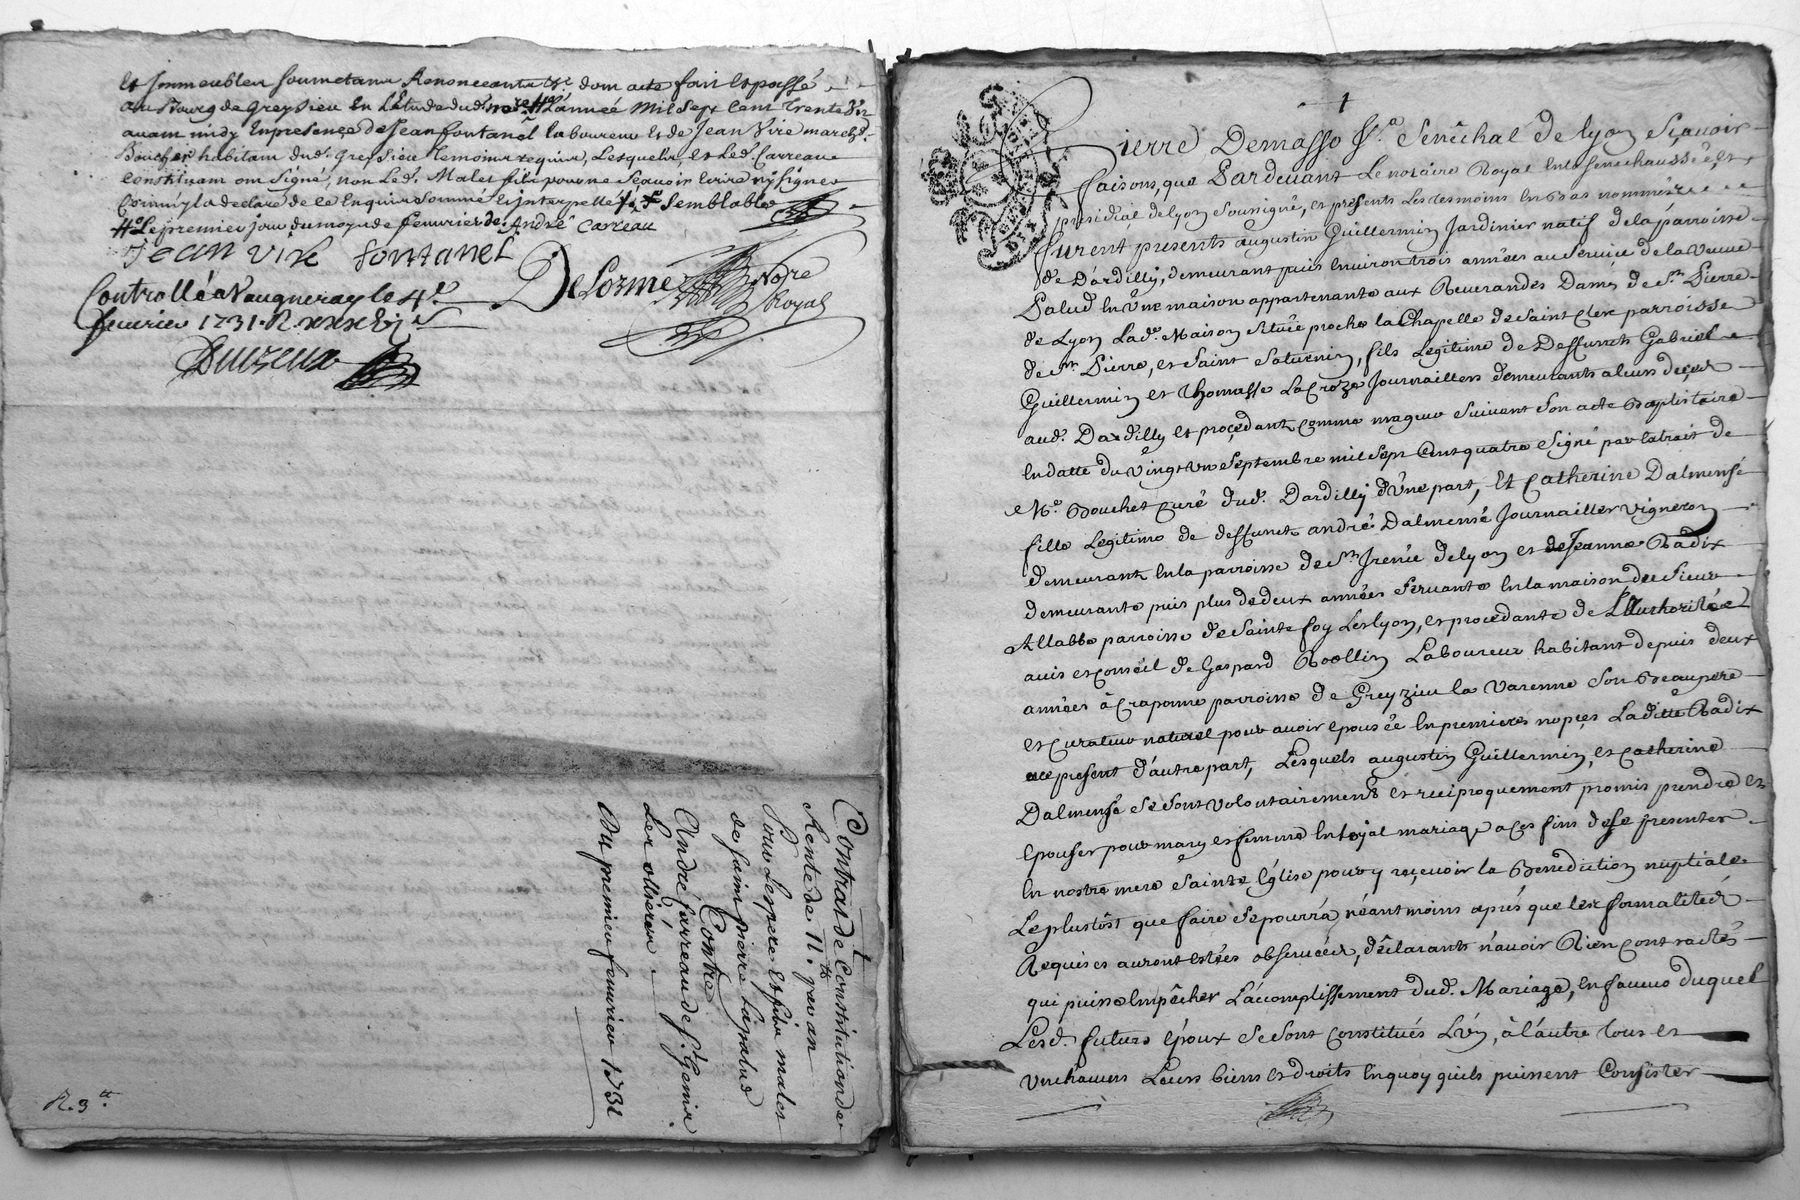 et Immeubles soumetans Renonceants &c. dont acte fait et passé
au Bourg de Greysieu en l'étude dud. nore # L'année mil sept cent trente un
avant midy En presence de Jean fontanel laboureur et de Jean Vire march.
Boucher habitans dud. Greysieu temoins requis, Lesquels, et Led. Carreau
constituant ont signé, non Led. Malet fils pour ne sçavoir Ecrire ny signer
Comm'il a declaré de ce Enquis sommé et interpellé semblable
# Le premier jour du moys de feuvrier André Carreau
JEAN VIRE fontanel
DeLorme Nore Royal
Controllé a Vaugneray le 4e
feuvrier 1731. R.
R. 3 tt
Contrat de Constitution de
Rente de 11. tt par an
Pour Les pere Et fils malet
de saint pierre Lapalud
Contre
André farreau de St. Genis
Les ollieres
Du premier feuvrier 1731
1
Pierre Demasso Sr. Senêchal de lyon Sçavoir
faisons, que Pardevant Le notaire Royal En la Senechaussée, et
presidial de lyon Sousigné, et présents Les tesmoins En bas nommés
furent presents augustin Guillermin Jardinier natif de la parroisse
de Dardilly, demeurant puis Environ trois années au service de la Veuve
Palud En Une maison appartenante aux Reverandes Dames de St. Pierre
de Lyon Lad. Maison Située proche la Chapelle de Saint Cler parroisse
de St. Pierre, et Saint Saturnin, fils Legitime de Deffuncts Gabriel
Guillermin et Thomasse LaCroze Journailiers demeurants a leurs decés
aud. Dardilly et procedant comme mageur Suivant Son acte Baptistaire
En datte du Vingt un Septembre mil Sept Cent quatre Signé par Extrait de
Me. Bouchet Curé dud. Dardilly d'Une part, Et Catherine Dalmensé
fille Legitime de deffunct andré Dalmensé Journailler Vigneron
demeurant En la parroisse de St. Irenée de lyon et de Jeanne Badix
demeurante puis plus de deux années Servante En la maison du Sieur
Allabbe parroisse de Sainte foy Les lyon, et procedante de L'Authorité
avis et Conseil de Gaspard Boollin Laboureur habitant depuis deux
années à Craponne parroisse de Greyzieu la Varenne Son Beaupere
et Curateur naturel pour avoir épousée En premieres nopces Laditte Badix
a ce present d'autre part, Lesquels augustin Guillermin, et Catherine
Dalmensé Se Sont Volontairement et reciproquement promis prendre et
Epouser pour mary et femme En loyal mariage a ces fins de Se presenter
En nostre mere Sainte Eglise pour y reçevoir la Benediction nuptiale
Le plustôst que faire Se pourra néantmoins aprés que les formalités
Requises auront estées observées, déclarants n'avoir Rien contractés
qui puisse Empêcher L'acomplissement dud. Mariage, en faveur duquel
Lesd. futurs époux Se Sont Constitués L'Un, à l'autre tous et
Un chacuns Leurs biens et droits En quoy qu'ils puissent Consister